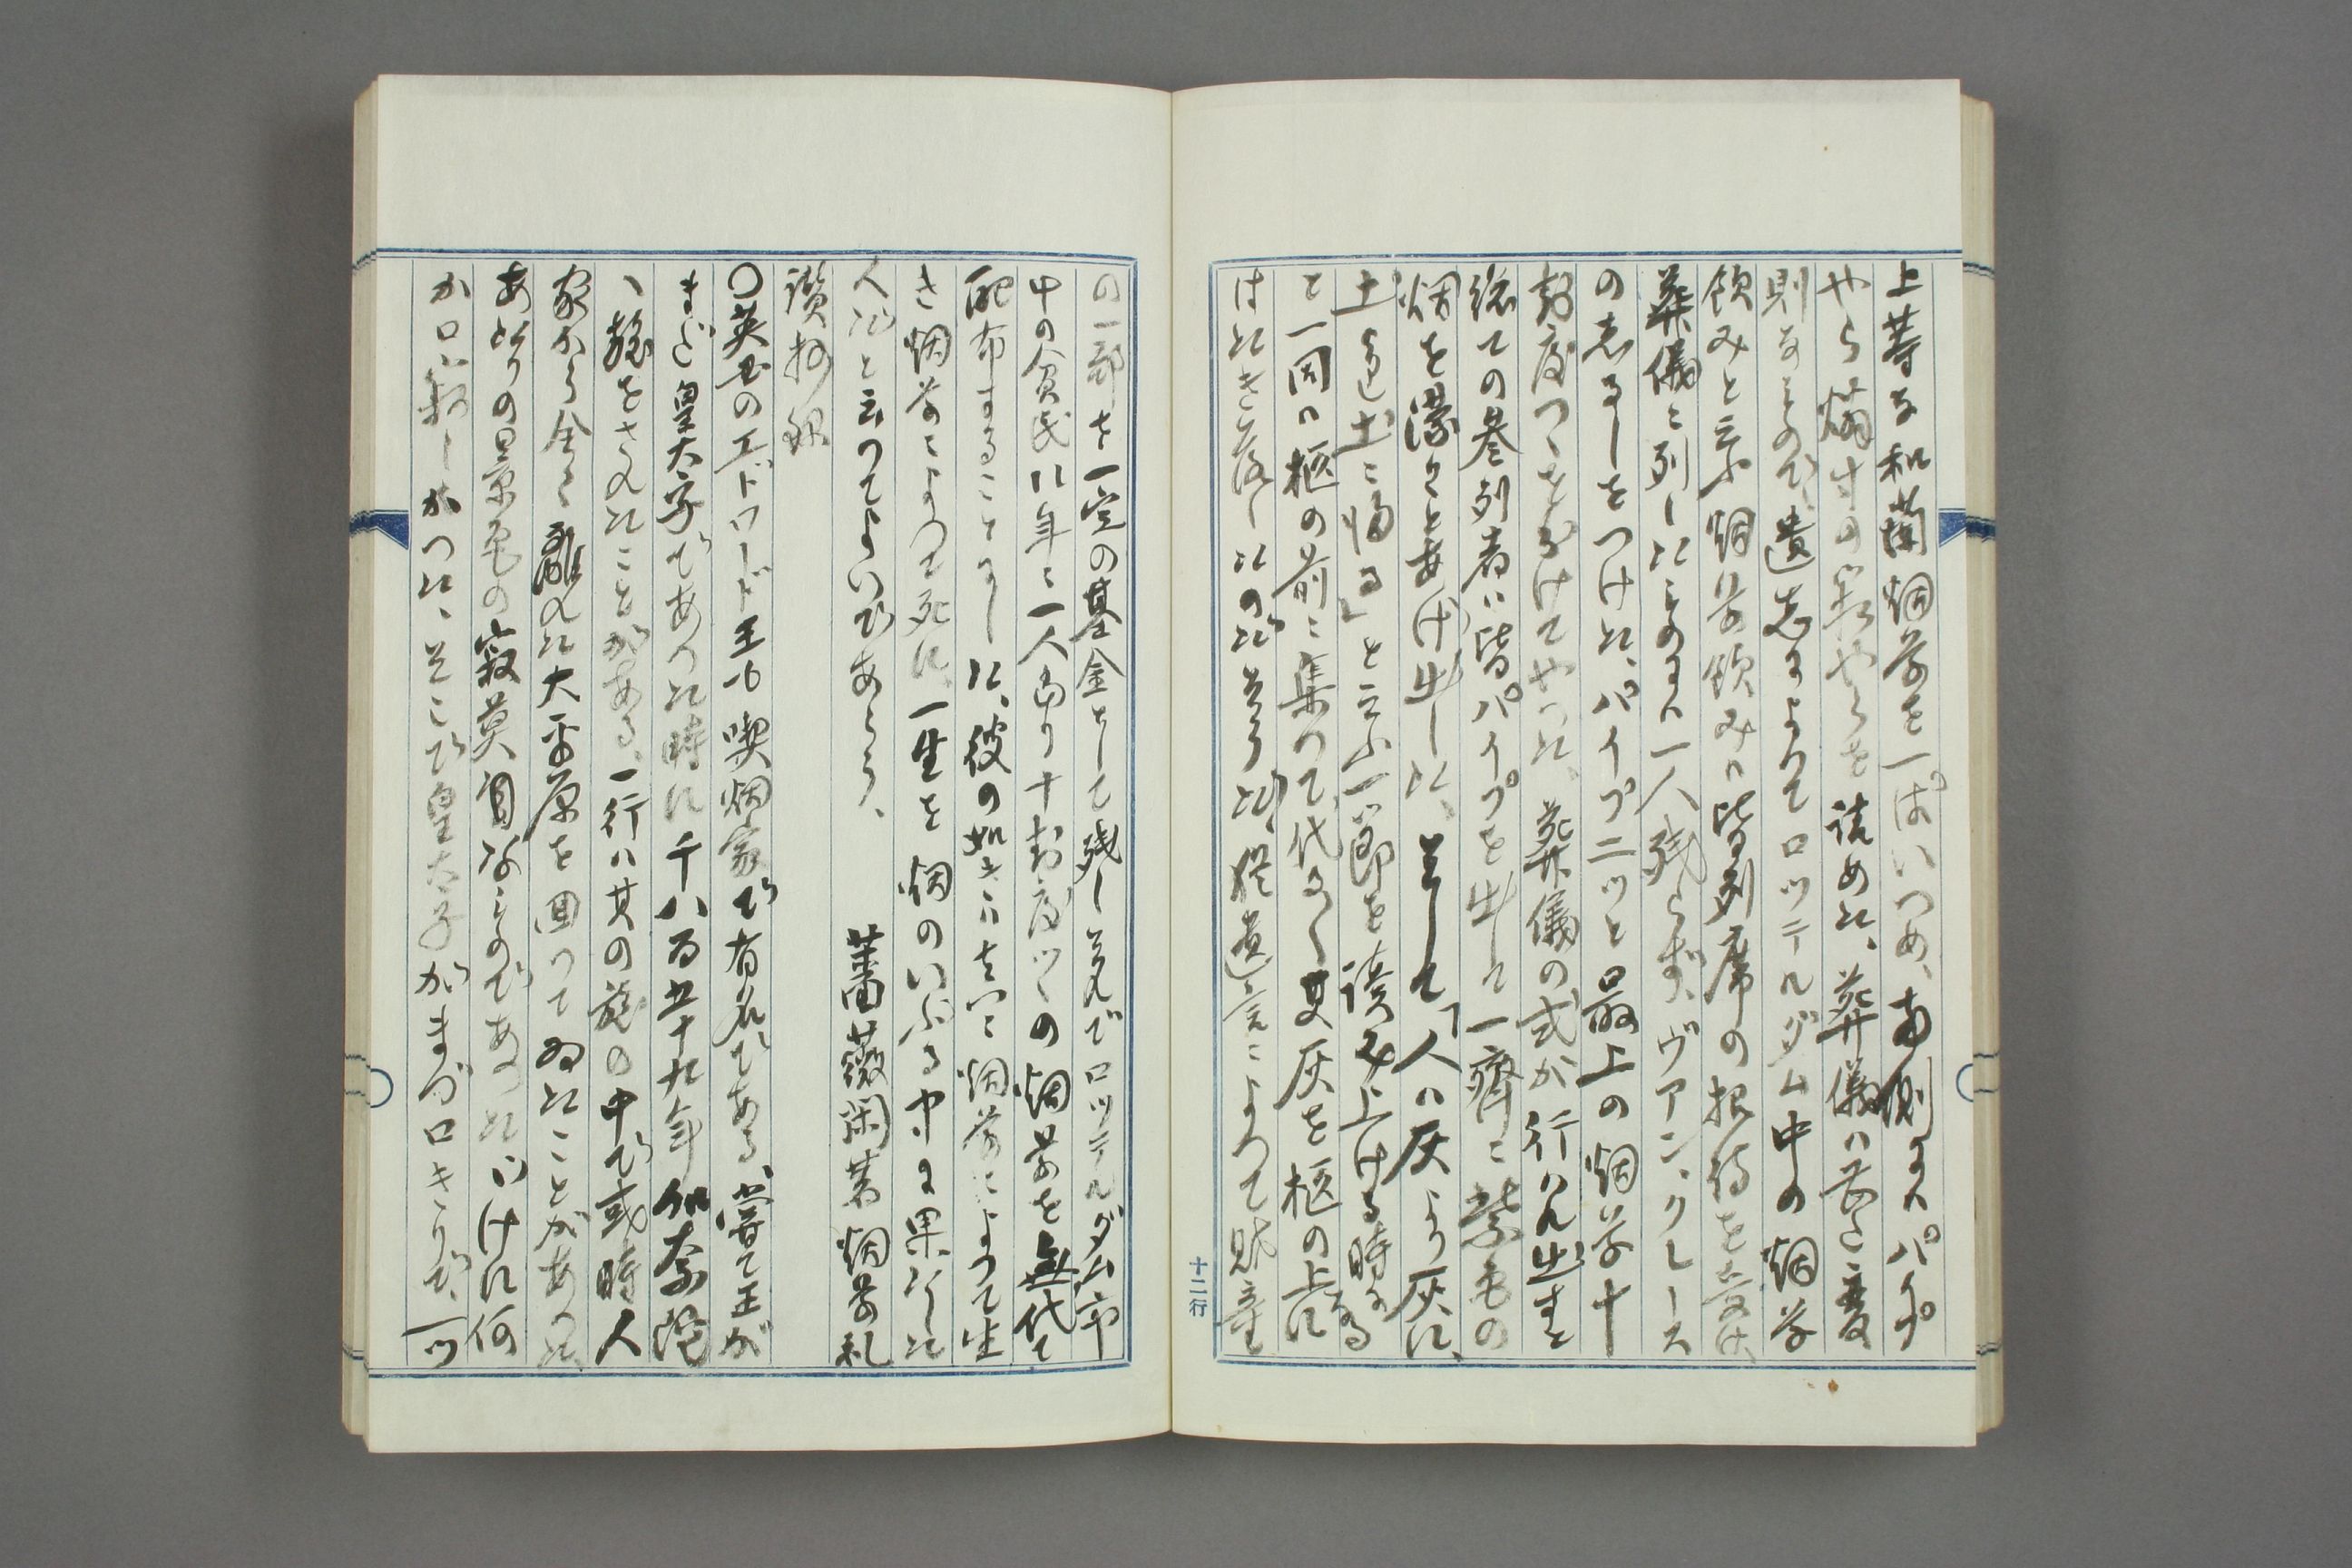 上等な和蘭烟草を一ぱいつめ、両側にハパイプ
やら燐寸の箱やらを詰めた、葬儀ハ至て変
則なもので、遺志によりてロツテルダム中の烟草
飲みと云ふ烟草飲みハ皆列席の招待を受け、
葬儀に列したものにハ一人残らず、ヴアン、クレース
のしるしをつけた、パイプ二ツと最上の烟草十
封度づゝをわけてやつた、葬儀の式が行ハれ出すと
総ての参列者ハ皆パイプを出して一齊に紫色の
烟を濛々とあげ出した、そして「人ハ灰より灰に、
土より土に帰る」と云ふ一節を読み上げる時になる
と一同ハ柩の前に集つて代る〱其灰を柩の上に
はたき落したのださうだ、猶遺言によつて財産
十二行
の一部を一定の基金として残し置んでロツテルダム市
中の貧民に年に一人あり十封度づゝの烟草を無代て
配布することにした、彼の如きハ実に烟草によつて生
き烟草によつて死に、一生を烟のいぶる中に果たした
人だと云つてよいであらう、
薔薇閑著烟草礼
讃抄録
〇英国のエドワード王も喫烟家で有名である、嘗て王が
まだ皇太子であつた時に千八百五十九年加奈陀
へ旅をされたことがある、一行ハ其の旅の中で或時人
家から全く離れた大平原を通つてゐたことがあつた、
あたりの景色の寂莫なものであつただけに何
か口に寂しかつた、そこで皇太子がまづ口きりで、一ツ